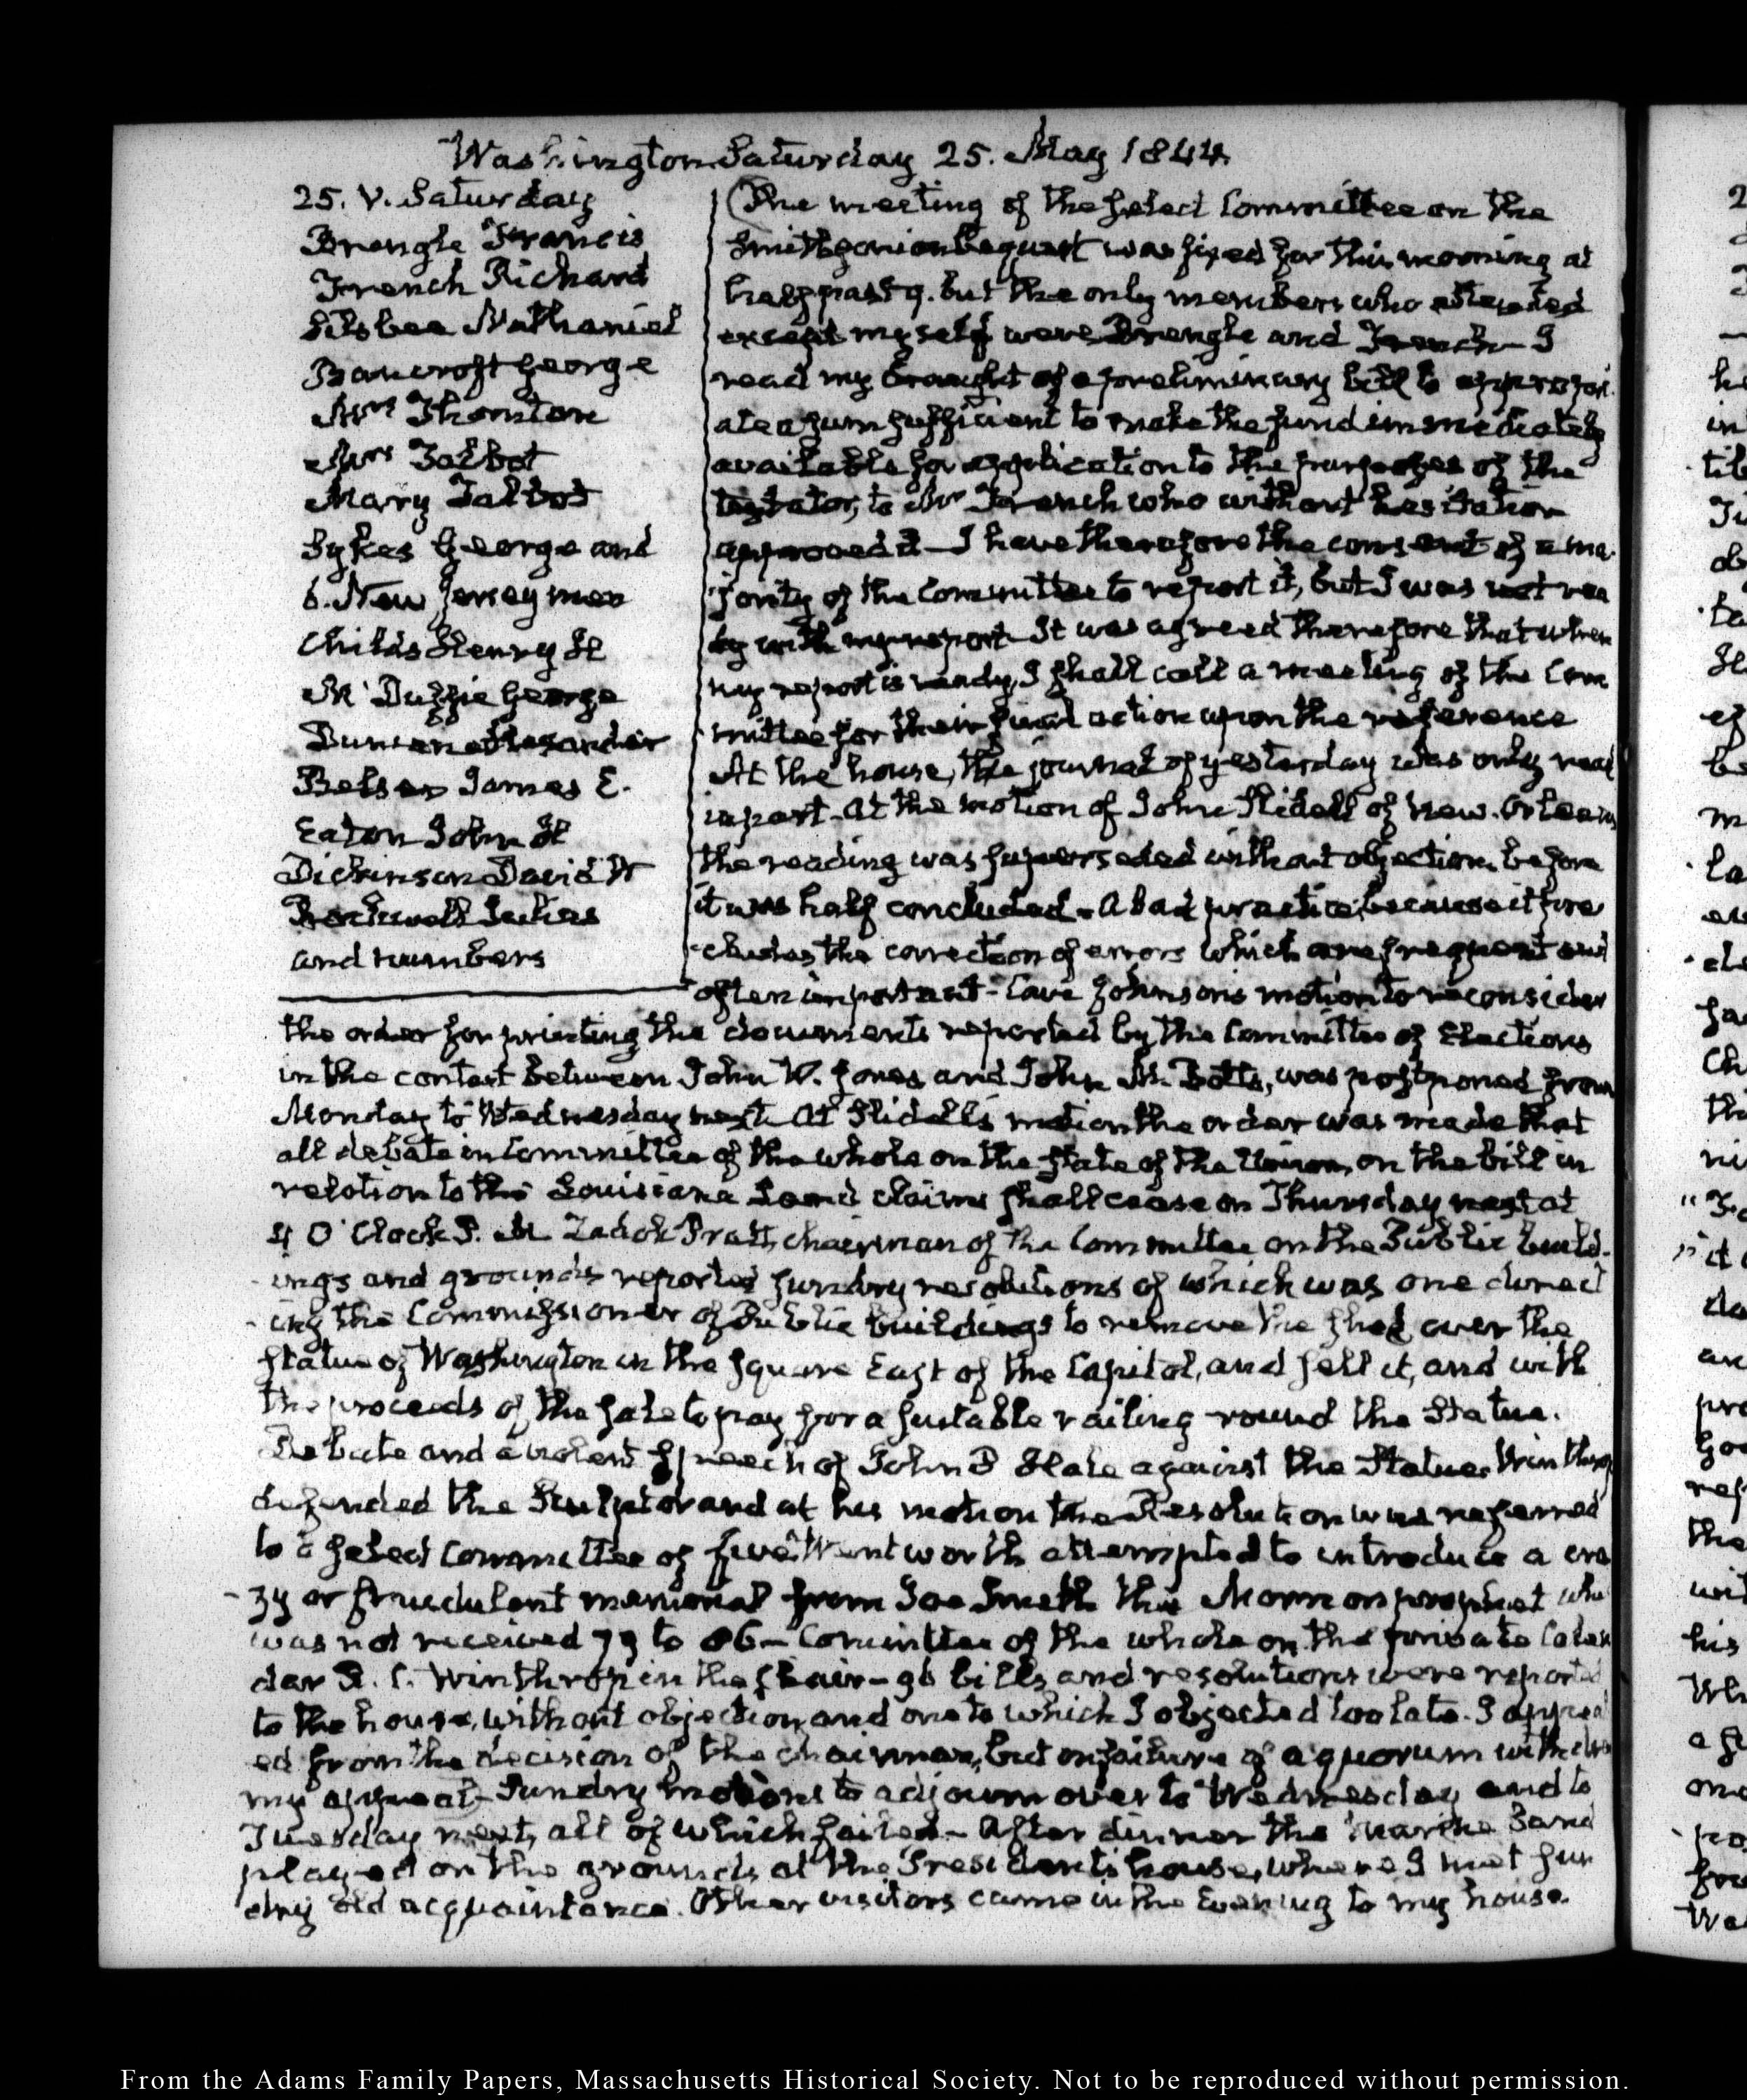 Washington Saturday 25. May 1844.
25. V. Saturday
Brengle Francis
French Richard
Silsbee Nathaniel
Bancroft George
Mrs Thornton
Mrs Talbot
Mary Talbot
Sykes George and
6. New Jersey men
Childs Henry H
McDuffie George
Duncan Alexander
Belser James E.
Eaton John H
Dickinson David W
Rockwell Julius
and numbers
The meeting of the select Committee on the
Smithsonian bequest was fixed for this morning at
half past 9. but the only members who attended
except myself were Brengle and French— I
read my draught of a preliminary bill to appropri-
ate a sum sufficient to make the fund immediately
available for application to the purposes of the
testator, to Mr French who without hesitation
approved it— I have therefore the consent of a ma-
jority of the Committee to report it, but I was not rea
dy with my report— It was agreed therefore that when
my report is ready, I shall call a meeting of the Com
mittee for their final action upon the reference
At the house, the journal of yesterday was only read
in part— at the motion of John Slidell of New-Orleans
the reading was superseded without objection before
it was half concluded— a bad practice, because it pre
cludes the correction of errors which are frequent and
often important— Cave Johnson's motion to reconsider
the order for printing the documents reported by the Committee of Elections
in the contest between John W. Jones and John M. Botts, was postponed from
Monday to Wednesday next. At Slidell's motion the order was made that
all debate in Committee of the whole on the state of the Union, on the bill in
relation to the Louisiana Land claims shall cease on Thursday next at
4 O'Clock P. M. Zadok Pratt, chairman of the Committee on the Public build-
ings and grounds reported sundry resolutions of which was one direct
ing the Commissioner of Public buildings to remove the shed over the
statue of Washington in the square East of the Capitol, and sell it, and with
the proceeds of the sale to pay for a suitable railing round the Statue.
Debate and a violent speech of John P Hale against the Statue. Winthrop
defended the Sculptor and at his motion the Resolution was referred
to a select Committee of five. Wentworth attempted to introduce a cra
-zy or fraudulent memorial from Joe Smith the Mormon prophet who
was not received 79 to 86— Committee of the whole on the private Calen
dar R. C. Winthrop in the chair— 96 bills and resolutions were reported
to the house, without objection, and one to which I objected too late. I appeal
ed from the decision of the chairman, but on failure of a quorum withdrew
my appeal— Sundry motions to adjourn over to Wednesday and to
Tuesday next, all of which failed— After dinner the Marine Band
played on the grounds at the President's house, where I met sun
dry old acquaintance. Other visitors came in the Evening to my house.
From the Adams Family Papers, Massachusetts Historical Society. Not to be reproduced without permission.